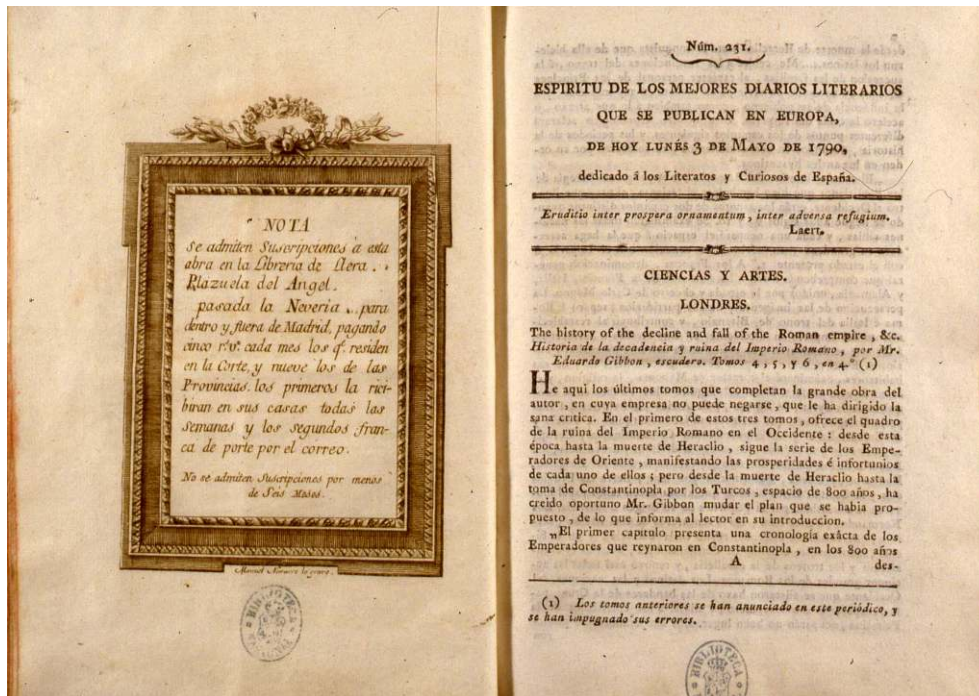 NOTA
Se admiten Suscripciones á esta
obra en la Libreria de Llera.
Plazuela del Angel.
pasada la Neveria, para
dentro y fuera de Madrid, pagando
cinco rs. vn. cada mes los q.e residen
en la Corte, y nueve los de las
Provincias. los primeros la rici-
biran en sus casas todas las
semanas y los segundos fran-
ca de porte por el correo.
No se admiten Suscripciones por menos
de Seis Meses.
Manuel
BIBLIOTECA
Núm. 231.
ESPIRITU DE LOS MEJORES DIARIOS LITERARIOS
QUE SE PUBLICAN EN EUROPA,
DE HOY LUNES 3 DE MAYO DE 1790,
dedicado á los Literatos y Curiosos de España.
Eruditio inter prospera ornamentum, inter adversa refugium.
Laert.
CIENCIAS Y ARTES.
LONDRES.
The history of the decline and fall of the Roman empire, &c.
Historia de la decadencia y ruina del Imperio Romano, por Mr.
Eduardo Gibbon, escudero. Tomos 4, 5, y 6, en 4.º (1)
He aqui los últimos tomos que completan la grande obra del
autor, en cuya empresa no puede negarse, que le ha dirigido la
sana critica. En el primero de estos tres tomos, ofrece el quadro
de la ruina del Imperio Romano en el Occidente: desde esta
época hasta la muerte de Heraclio, sigue la serie de los Empe-
radores de Oriente, manifestando las prosperidades é infortunios
de cada uno de ellos; pero desde la muerte de Heraclio hasta la
toma de Constantinopla por los Turcos, espacio de 800 años, ha
creido oportuno Mr. Gibbon mudar el plan que se habia pro-
puesto, de lo que informa al lector en su introduccion.
„El primer capitulo presenta una cronología exâcta de los
Emperadores que reynaron en Constantinopla, en los 800 años
A des-
(1) Los tomos anteriores se han anunciado en este periódico, y
se han impugnado sus errores.
BIBLIOTECA